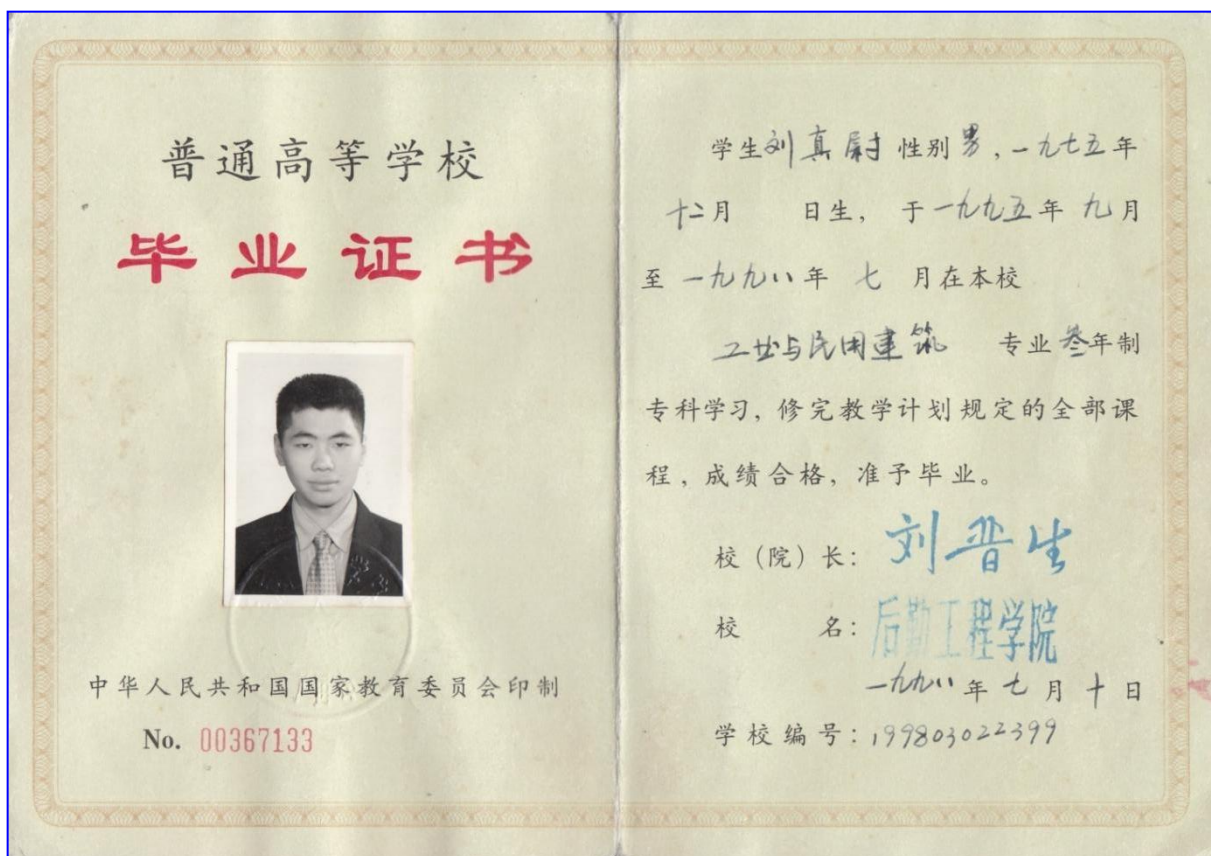 普通高等学校
毕业证书
中华人民共和国国家教育委员会印制
No. 00367133
学生刘真尉性别男,一九七五年
十二月 日生, 于一九九五年 九月
至 一九九八年 七 月在本校
工业与民用建筑 专业叁年制
专科学习, 修完教学计划规定的全部课
程, 成绩合格, 准予毕业。
校(院)长: 刘晋生
校 名: 后勤工程学院
一九九八年七月十日
学校编号: 199803022399